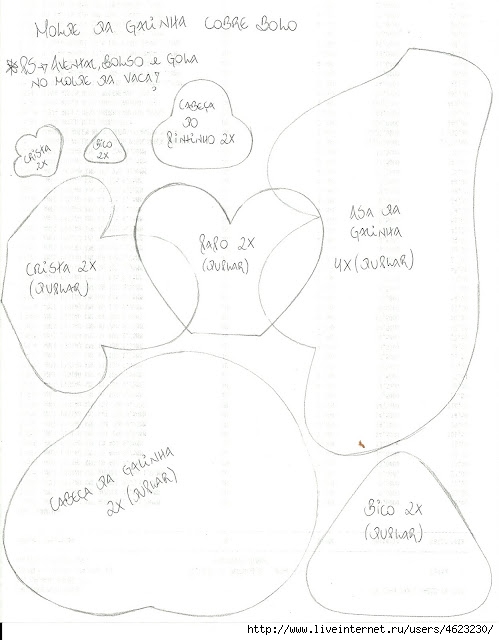 MOLDE DA GALINHA COBRE BOLO
*PS→ AVENTAL, BOLSO E GOLA
NO MOLDE DA VACA!
CABEÇA
DO
PINTINHO 2X
CRISTA
2X
BICO
2X
ASA DA
GALINHA
4X (DUPLAR)
PAPO 2X
(DUPLAR)
CRISTA 2X
(DUPLAR)
CABEÇA DA GALINHA
2X (DUPLAR)
BICO 2X
(DUPLAR)
http://www.liveinternet.ru/users/4623230/